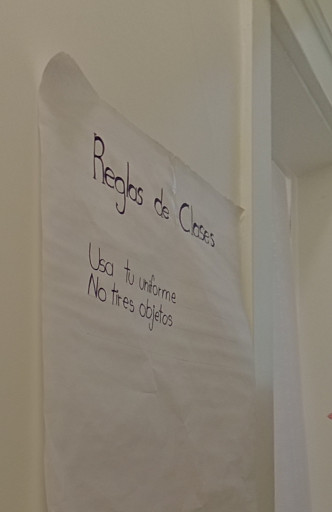 Reglas de Clases
Usa tu uniforme
No tires objetos